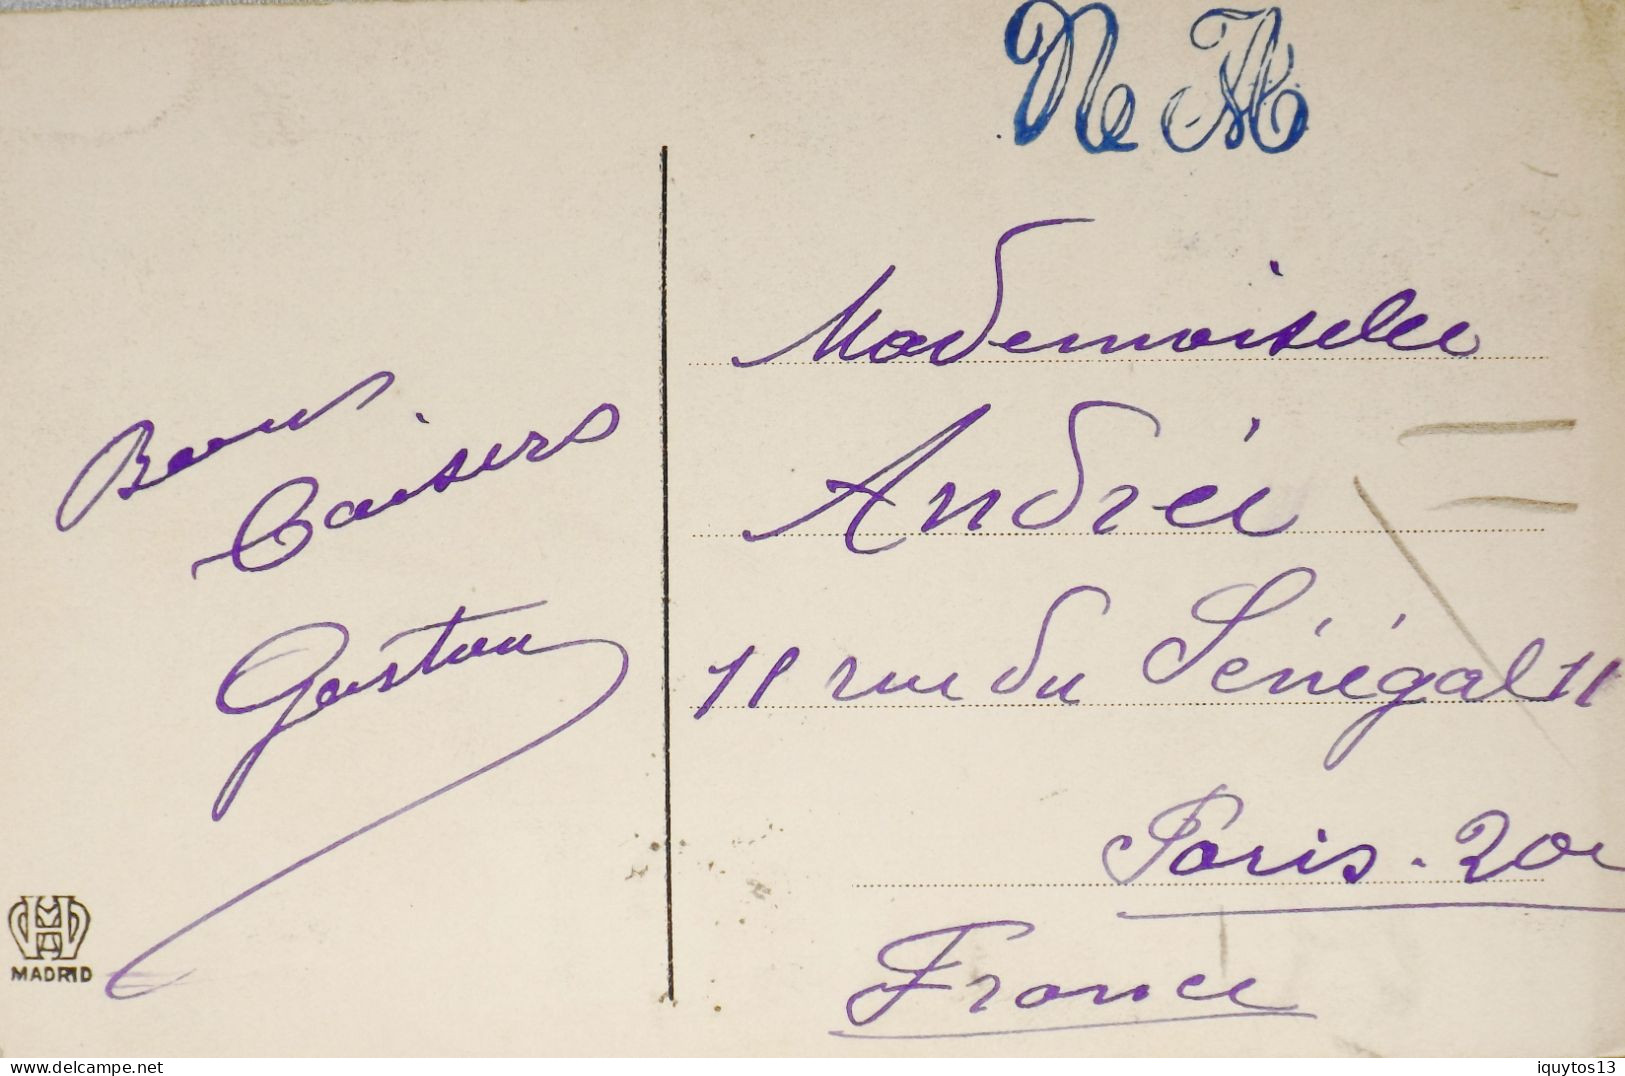 N A
Bons
Baisers
Gaston
Mademoiselle
Andrée
11 rue du Sénégal 11
Paris. 20e
France
MADRID
delcampe.net
iquytos13